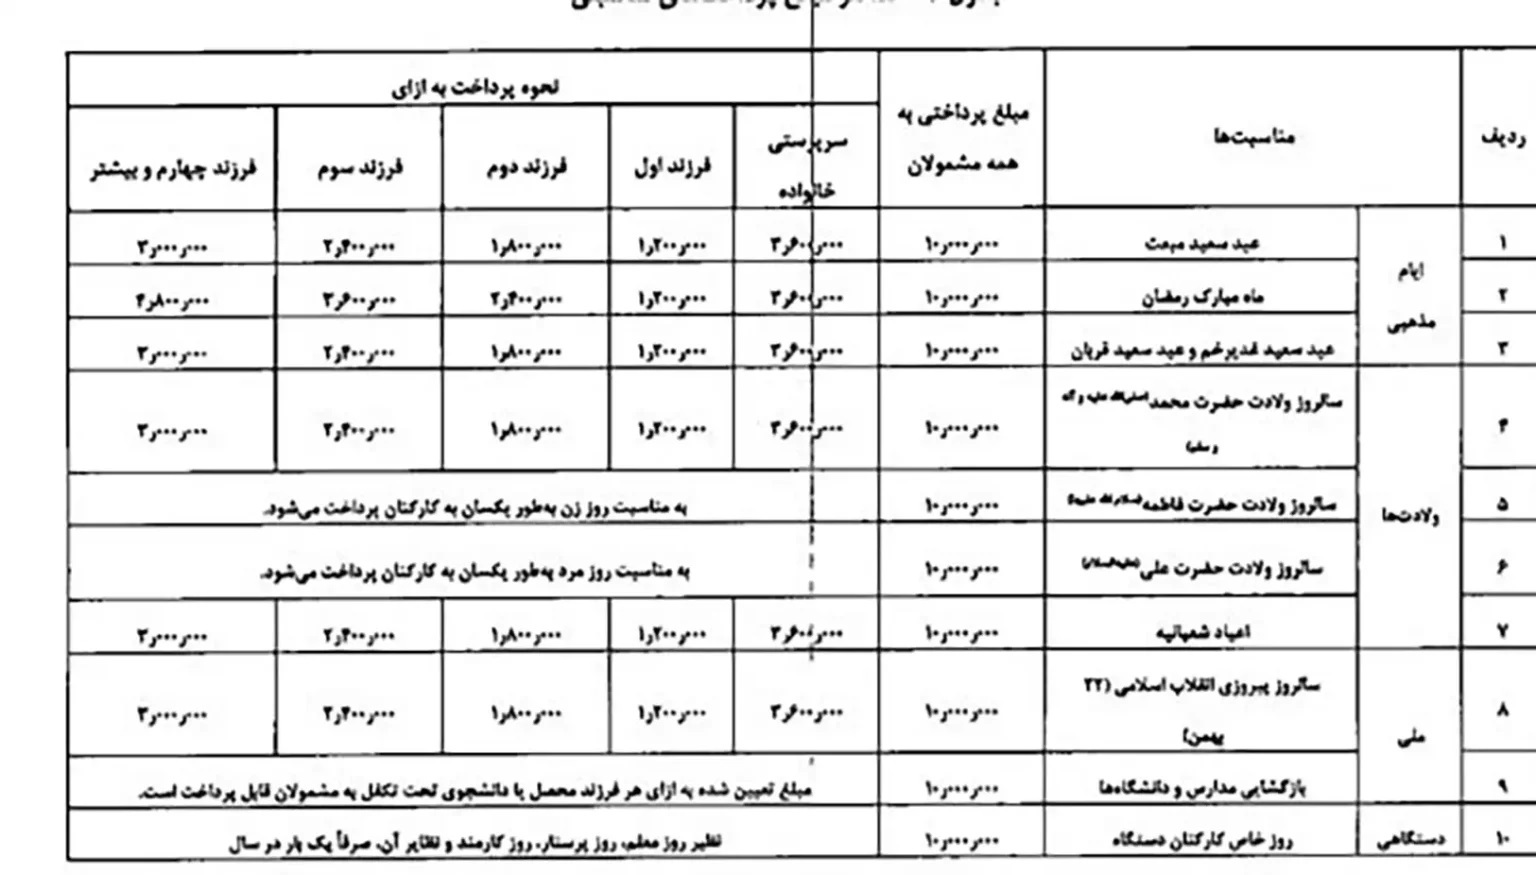 ردیف
مناسبت‌ها
مبلغ پرداختی به
همه مشمولان
نحوه پرداخت به ازای
سرپرستی
خانواده
فرزند اول
فرزند دوم
فرزند سوم
فرزند چهارم و بیشتر
ایام
مذهبی
۱ عید سعید مبعث ۱۰٫۰۰۰٫۰۰۰ ۳٫۶۰۰٫۰۰۰ ۱٫۲۰۰٫۰۰۰ ۱٫۸۰۰٫۰۰۰ ۲٫۴۰۰٫۰۰۰ ۳٫۰۰۰٫۰۰۰
۲ ماه مبارک رمضان ۱۰٫۰۰۰٫۰۰۰ ۳٫۶۰۰٫۰۰۰ ۱٫۲۰۰٫۰۰۰ ۲٫۴۰۰٫۰۰۰ ۳٫۶۰۰٫۰۰۰ ۴٫۸۰۰٫۰۰۰
۳ عید سعید غدیرخم و عید سعید قربان ۱۰٫۰۰۰٫۰۰۰ ۳٫۶۰۰٫۰۰۰ ۱٫۲۰۰٫۰۰۰ ۱٫۸۰۰٫۰۰۰ ۲٫۴۰۰٫۰۰۰ ۳٫۰۰۰٫۰۰۰
ولادت‌ها
سالروز ولادت حضرت محمد (صلی‌الله علیه و آله
و سلم)
۴ ۱۰٫۰۰۰٫۰۰۰ ۳٫۶۰۰٫۰۰۰ ۱٫۲۰۰٫۰۰۰ ۱٫۸۰۰٫۰۰۰ ۲٫۴۰۰٫۰۰۰ ۳٫۰۰۰٫۰۰۰
۵ سالروز ولادت حضرت فاطمه (سلام‌الله علیها) ۱۰٫۰۰۰٫۰۰۰ به مناسبت روز زن به‌طور یکسان به کارکنان پرداخت می‌شود.
۶ سالروز ولادت حضرت علی (علیه‌السلام) ۱۰٫۰۰۰٫۰۰۰ به مناسبت روز مرد به‌طور یکسان به کارکنان پرداخت می‌شود.
۷ اعیاد شعبانیه ۱۰٫۰۰۰٫۰۰۰ ۳٫۶۰۰٫۰۰۰ ۱٫۲۰۰٫۰۰۰ ۱٫۸۰۰٫۰۰۰ ۲٫۴۰۰٫۰۰۰ ۳٫۰۰۰٫۰۰۰
ملی
سالروز پیروزی انقلاب اسلامی (۲۲
بهمن)
۸ ۱۰٫۰۰۰٫۰۰۰ ۳٫۶۰۰٫۰۰۰ ۱٫۲۰۰٫۰۰۰ ۱٫۸۰۰٫۰۰۰ ۲٫۴۰۰٫۰۰۰ ۳٫۰۰۰٫۰۰۰
۹ بازگشایی مدارس و دانشگاه‌ها ۱۰٫۰۰۰٫۰۰۰ مبلغ تعیین شده به ازای هر فرزند محصل یا دانشجوی تحت تکفل به مشمولان قابل پرداخت است.
۱۰ دستگاهی روز خاص کارکنان دستگاه ۱۰٫۰۰۰٫۰۰۰ نظیر روز معلم، روز پرستار، روز کارمند و نظایر آن، صرفاً یک بار در سال